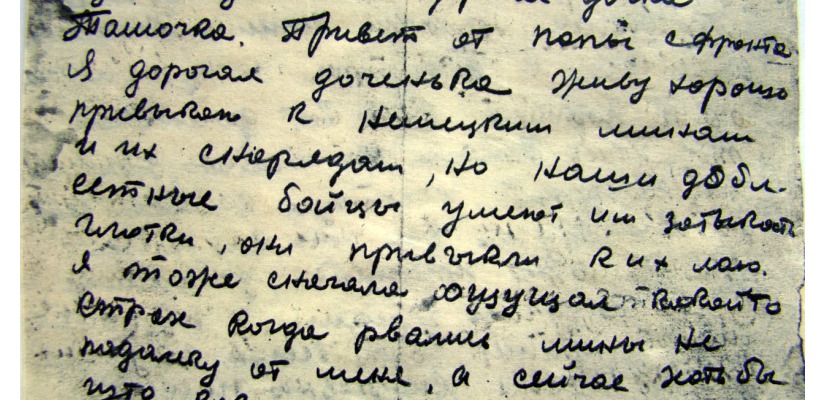 дочка
Ташочка. Привет от папы с фронта
Я дорогая доченька живу хорошо
привыкаю к немецким минам
и их снарядам, но наши добл-
естные бойцы умеют им затыкать
глотки, они привыкли к их лаю.
Я тоже сначала ощущал какойто
страх когда рвались мины не
подалёку от меня, а сейчас хотьбы
што